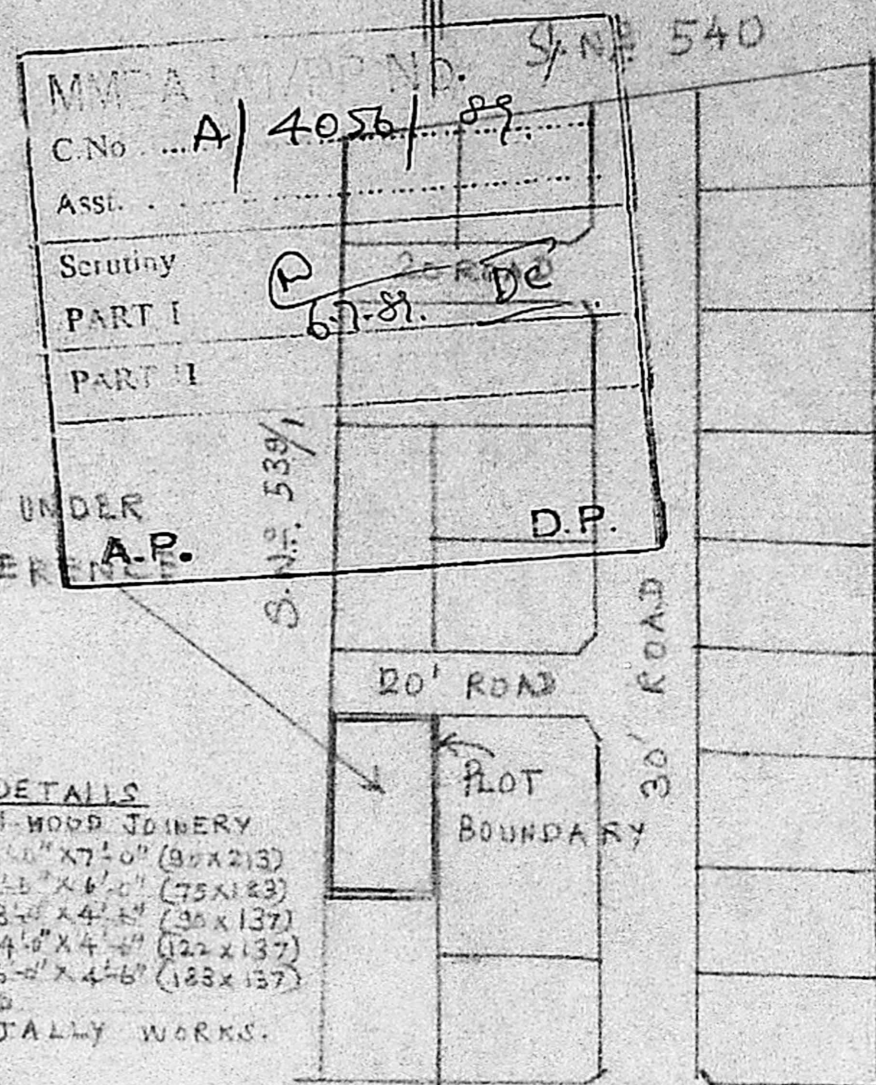 S. No 540
MMDA
C.No ... A/ 4056/ 89.
Asst.
Scrutiny
PART I
6-7-89.
DC
ROAD
PART II
S.No. 539/1
UNDER
A.P.
D.P.
20' ROAD
30' ROAD
PLOT
BOUNDARY
DETAILS
WOOD JOINERY
X7'-0" (90X213)
X 6'-0" (75X183)
X 4'-6" (90X137)
4'-0" X 4'-6" (122X137)
X 4'-6" (183X137)
JALLY WORKS.